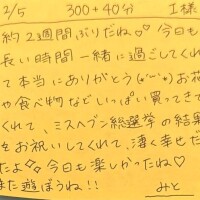 2/5 300+40分 I様
約2週間ぶりだね♡♡ 今日も
長い時間 一緒に過ごしてくれ
て本当にありがとう(*˘︶˘*) お花
や食べ物などいっぱい買ってきて
くれて、ミスヘブン総選挙の結果
をお祝いしてくれて、凄く幸せだっ
たよ◇。今日も楽しかったね♡
また遊ぼうね!!
みと